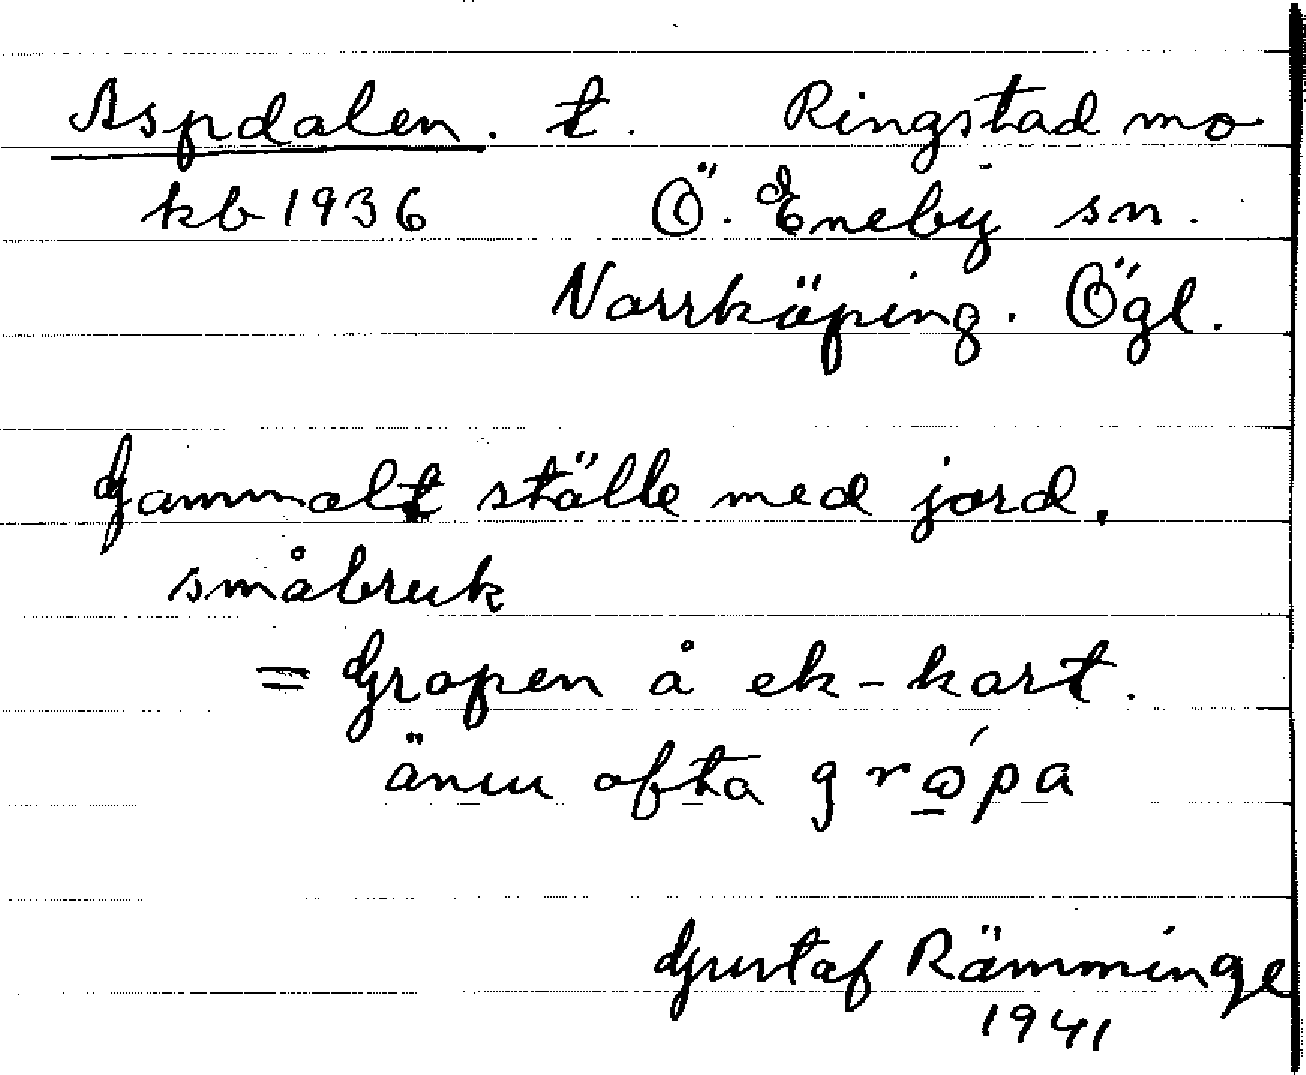 Aspdalen. t. Ringstad mo
kb 1936 Ö. Eneby sn.
Norrköping. Ögl.
Gammalt ställe med jord.
småbruk
= Gropen å ek-kart.
ännu ofta grǿpa
Gustaf Rämminge
1941